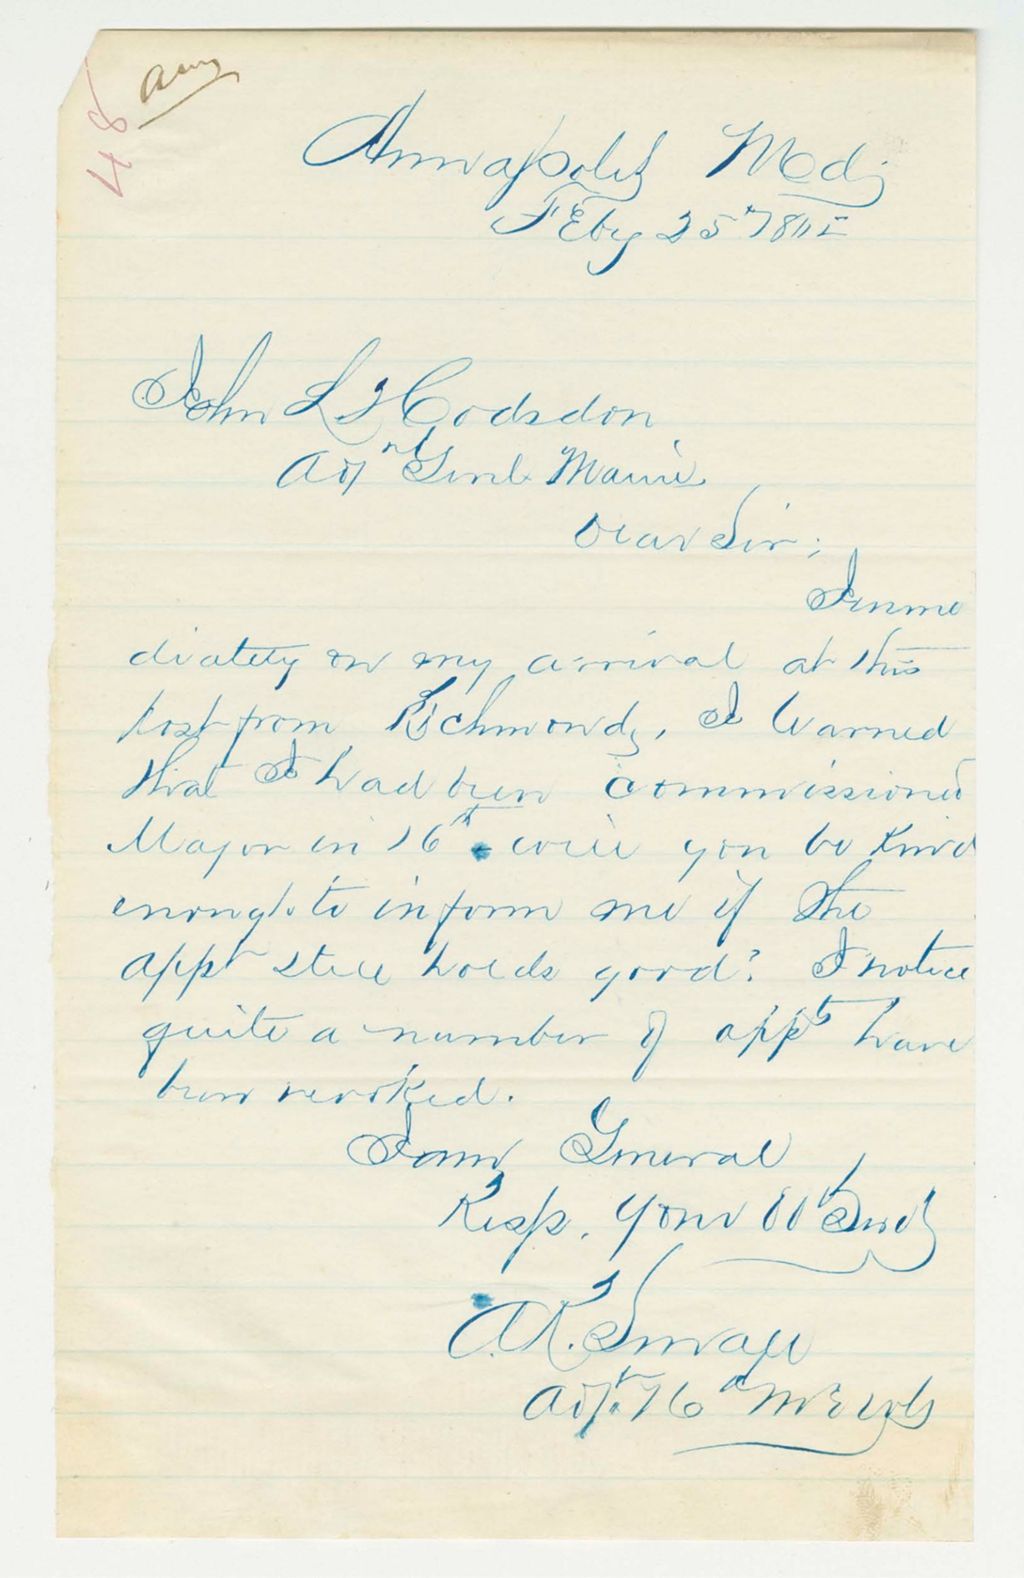 48
Annapolis Md;
FEby 25" 1865
John L Hodsdon
Adjt Genl Maine
Dear Sir;
Imme
diately on my arrival at this
post from Richmond, I learned
that I had been commissioned
Major in 16th. will you be kind
enough to inform me if the
appt still holds good? I notice
quite a number of appts have
been revoked.
I am General
Resp. Your Obt Svt
A.R. Small
Adjt. 16th ME Vols